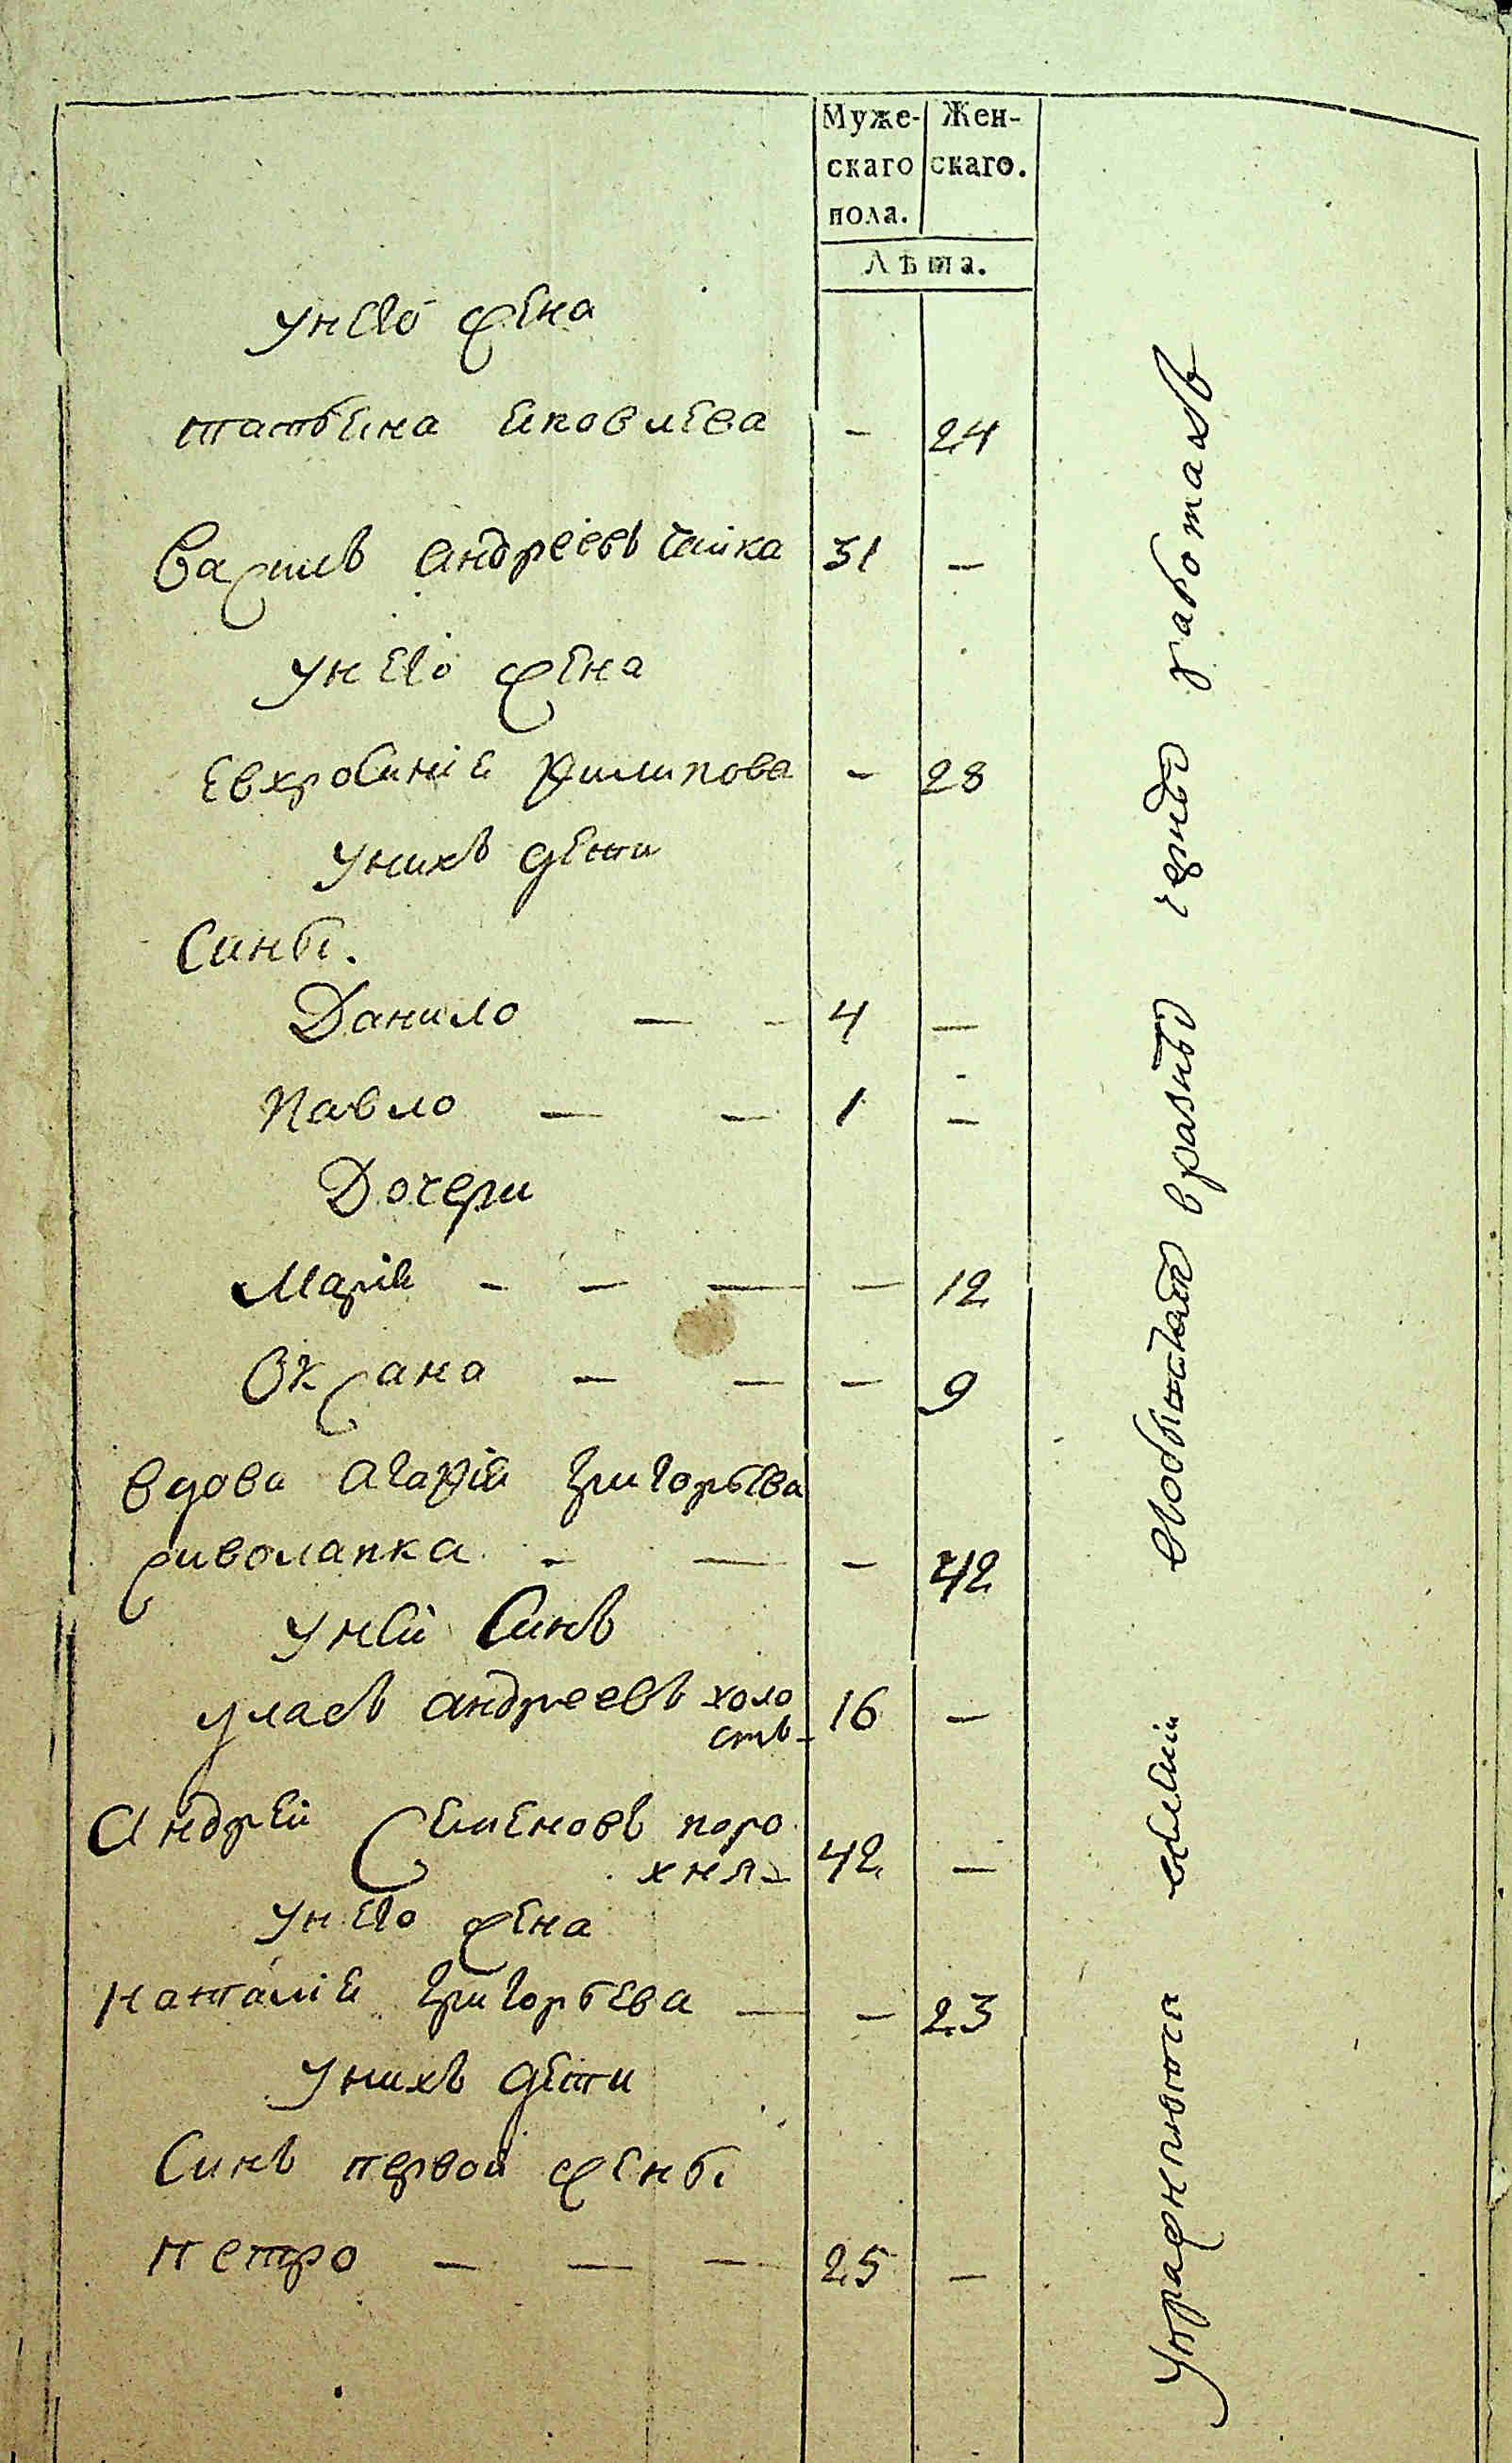 Муже- Жен-
скаго скаго.
пола.
Лѣта.
у него жена
татьѧна ѧковлева - 24
Василь андреевъ чайка 31 —
у него жена
Евхросиніѧ Филипова - 28
у нихъ дети
Синьі.
Данило — - 4 —
Павло — — 1 —
Дочери
Маріѧ - — — — 12
Оксана — — — 9
вдова агафіѧ григорьева
сиволапка - — — 42
у ней Синъ
улась андреевъ холо
стъ - 16 —
андрей Семеновъ поро
хня - 42 —
у него жена
наталіѧ григорьева — - 23
у нихъ дети
Синъ первой женьі
петро — — — 25 —
Упражнѧютсѧ в разныхъ черныхъ работахъ